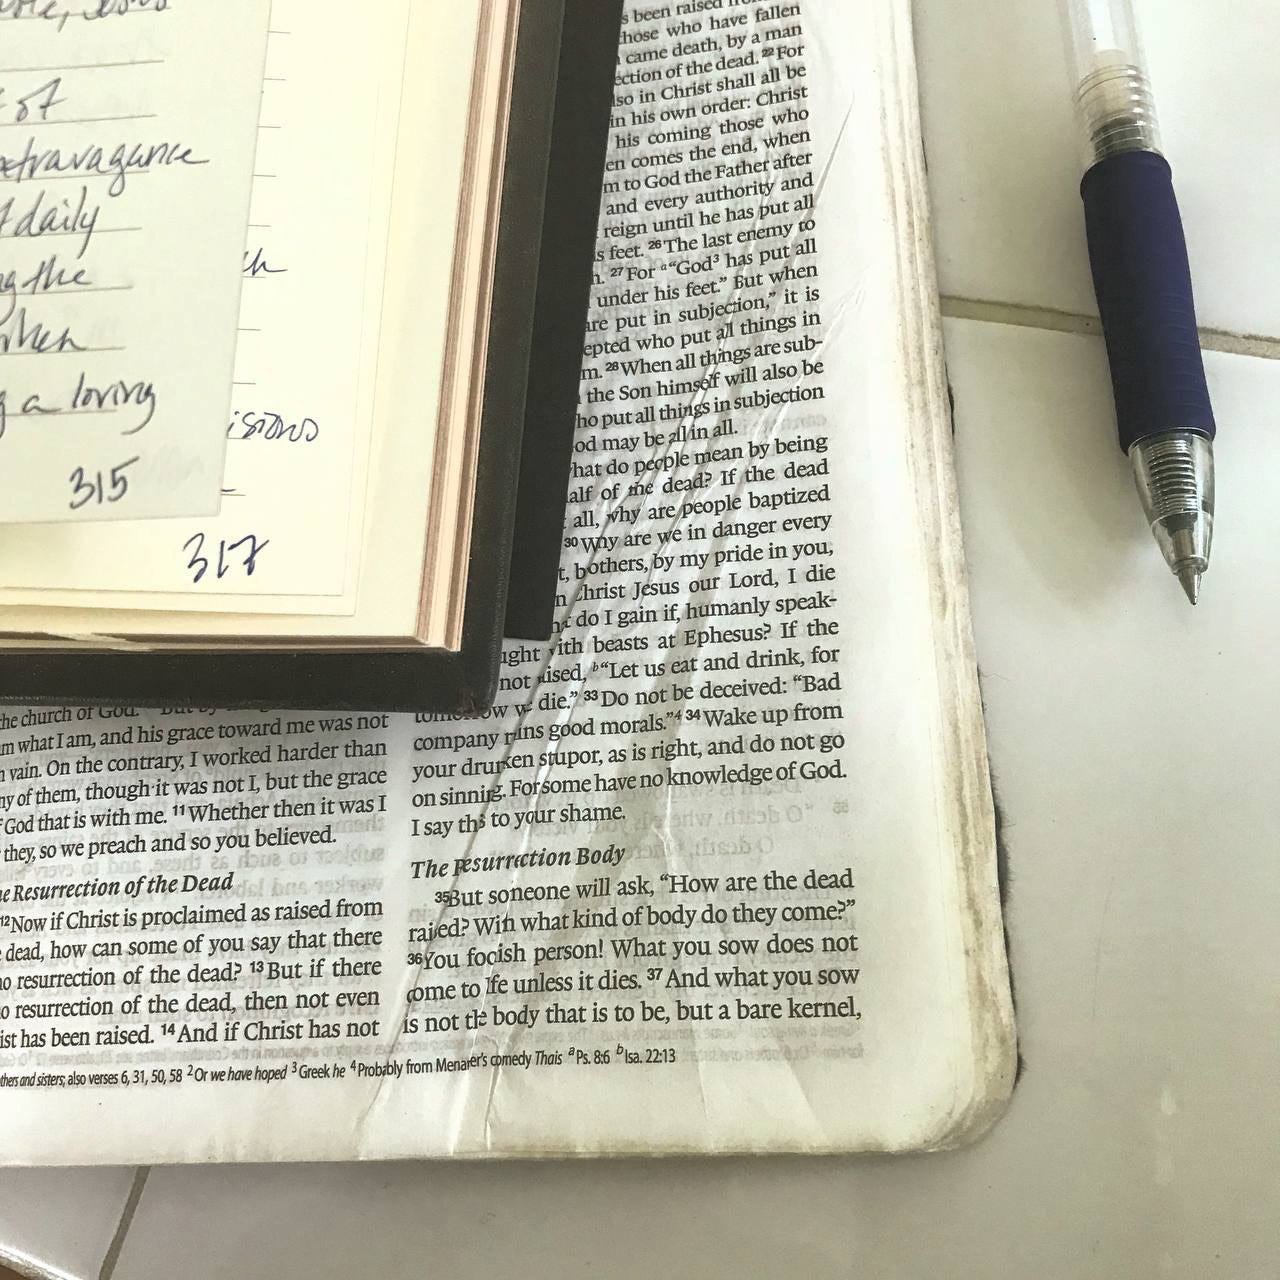 of
extravagance
daily
the
when
a loving
315
317
s been raised
those who have fallen
came death, by a man
ection of the dead. 22 For
lso in Christ shall all be
in his own order: Christ
his coming those who
en comes the end, when
m to God the Father after
and every authority and
reign until he has put all
s feet. 26 The last enemy to
h. 27 For a "God3 has put all
under his feet." But when
are put in subjection," it is
epted who put all things in
m. 28 When all things are sub-
the Son himself will also be
ho put all things in subjection
od may be all in all.
hat do people mean by being
alf of the dead? If the dead
all, why are people baptized
30 Why are we in danger every
t, bothers, by my pride in you,
n Christ Jesus our Lord, I die
do I gain if, humanly speak-
ught with beasts at Ephesus? If the
not aised, b "Let us eat and drink, for
tomorrow we die." 33 Do not be deceived: "Bad
company ruins good morals."4 34 Wake up from
your drunken stupor, as is right, and do not go
on sinning. For some have no knowledge of God.
I say this to your shame.
The Resurrection Body
35 But someone will ask, "How are the dead
raised? With what kind of body do they come?"
36 You foolish person! What you sow does not
come to life unless it dies. 37 And what you sow
is not the body that is to be, but a bare kernel,
the church of God.
m what I am, and his grace toward me was not
n vain. On the contrary, I worked harder than
ny of them, though it was not I, but the grace
f God that is with me. 11 Whether then it was I
they, so we preach and so you believed.
e Resurrection of the Dead
12 Now if Christ is proclaimed as raised from
dead, how can some of you say that there
no resurrection of the dead? 13 But if there
o resurrection of the dead, then not even
ist has been raised. 14 And if Christ has not
thers and sisters; also verses 6, 31, 50, 58 2 Or we have hoped 3 Greek he 4 Probably from Menander's comedy Thais a Ps. 8:6 b Isa. 22:13